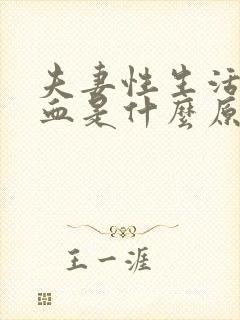 夫妻性生活
血是什麼原
王一涯